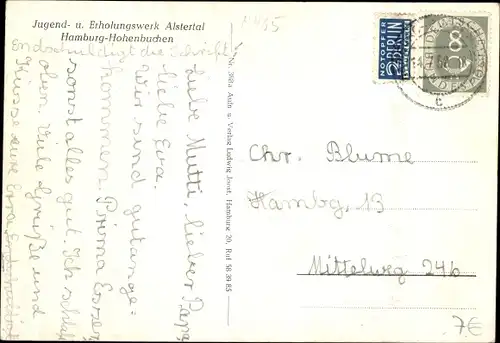 Jugend- u. Erholungswerk Alstertal
Hamburg-Hohenbuchen
Endschuldigt die Schrift
Liebe Mutti, lieber Papa,
liebe Eva.
Wir sind gutange-
kommen. Prima Essen
sonst alles gut. Ich schlafe
oben. Viele Grüße und
Küsse eure
Nr. 398a Aufn. u. Verlag Ludwig Jorst, Hamburg 20, Ruf 58 39 85
NOTOPFER
2 BERLIN
STEUERMARKE
8
Chr. Blume
Hambg, 13
Mittelweg 24b
7€